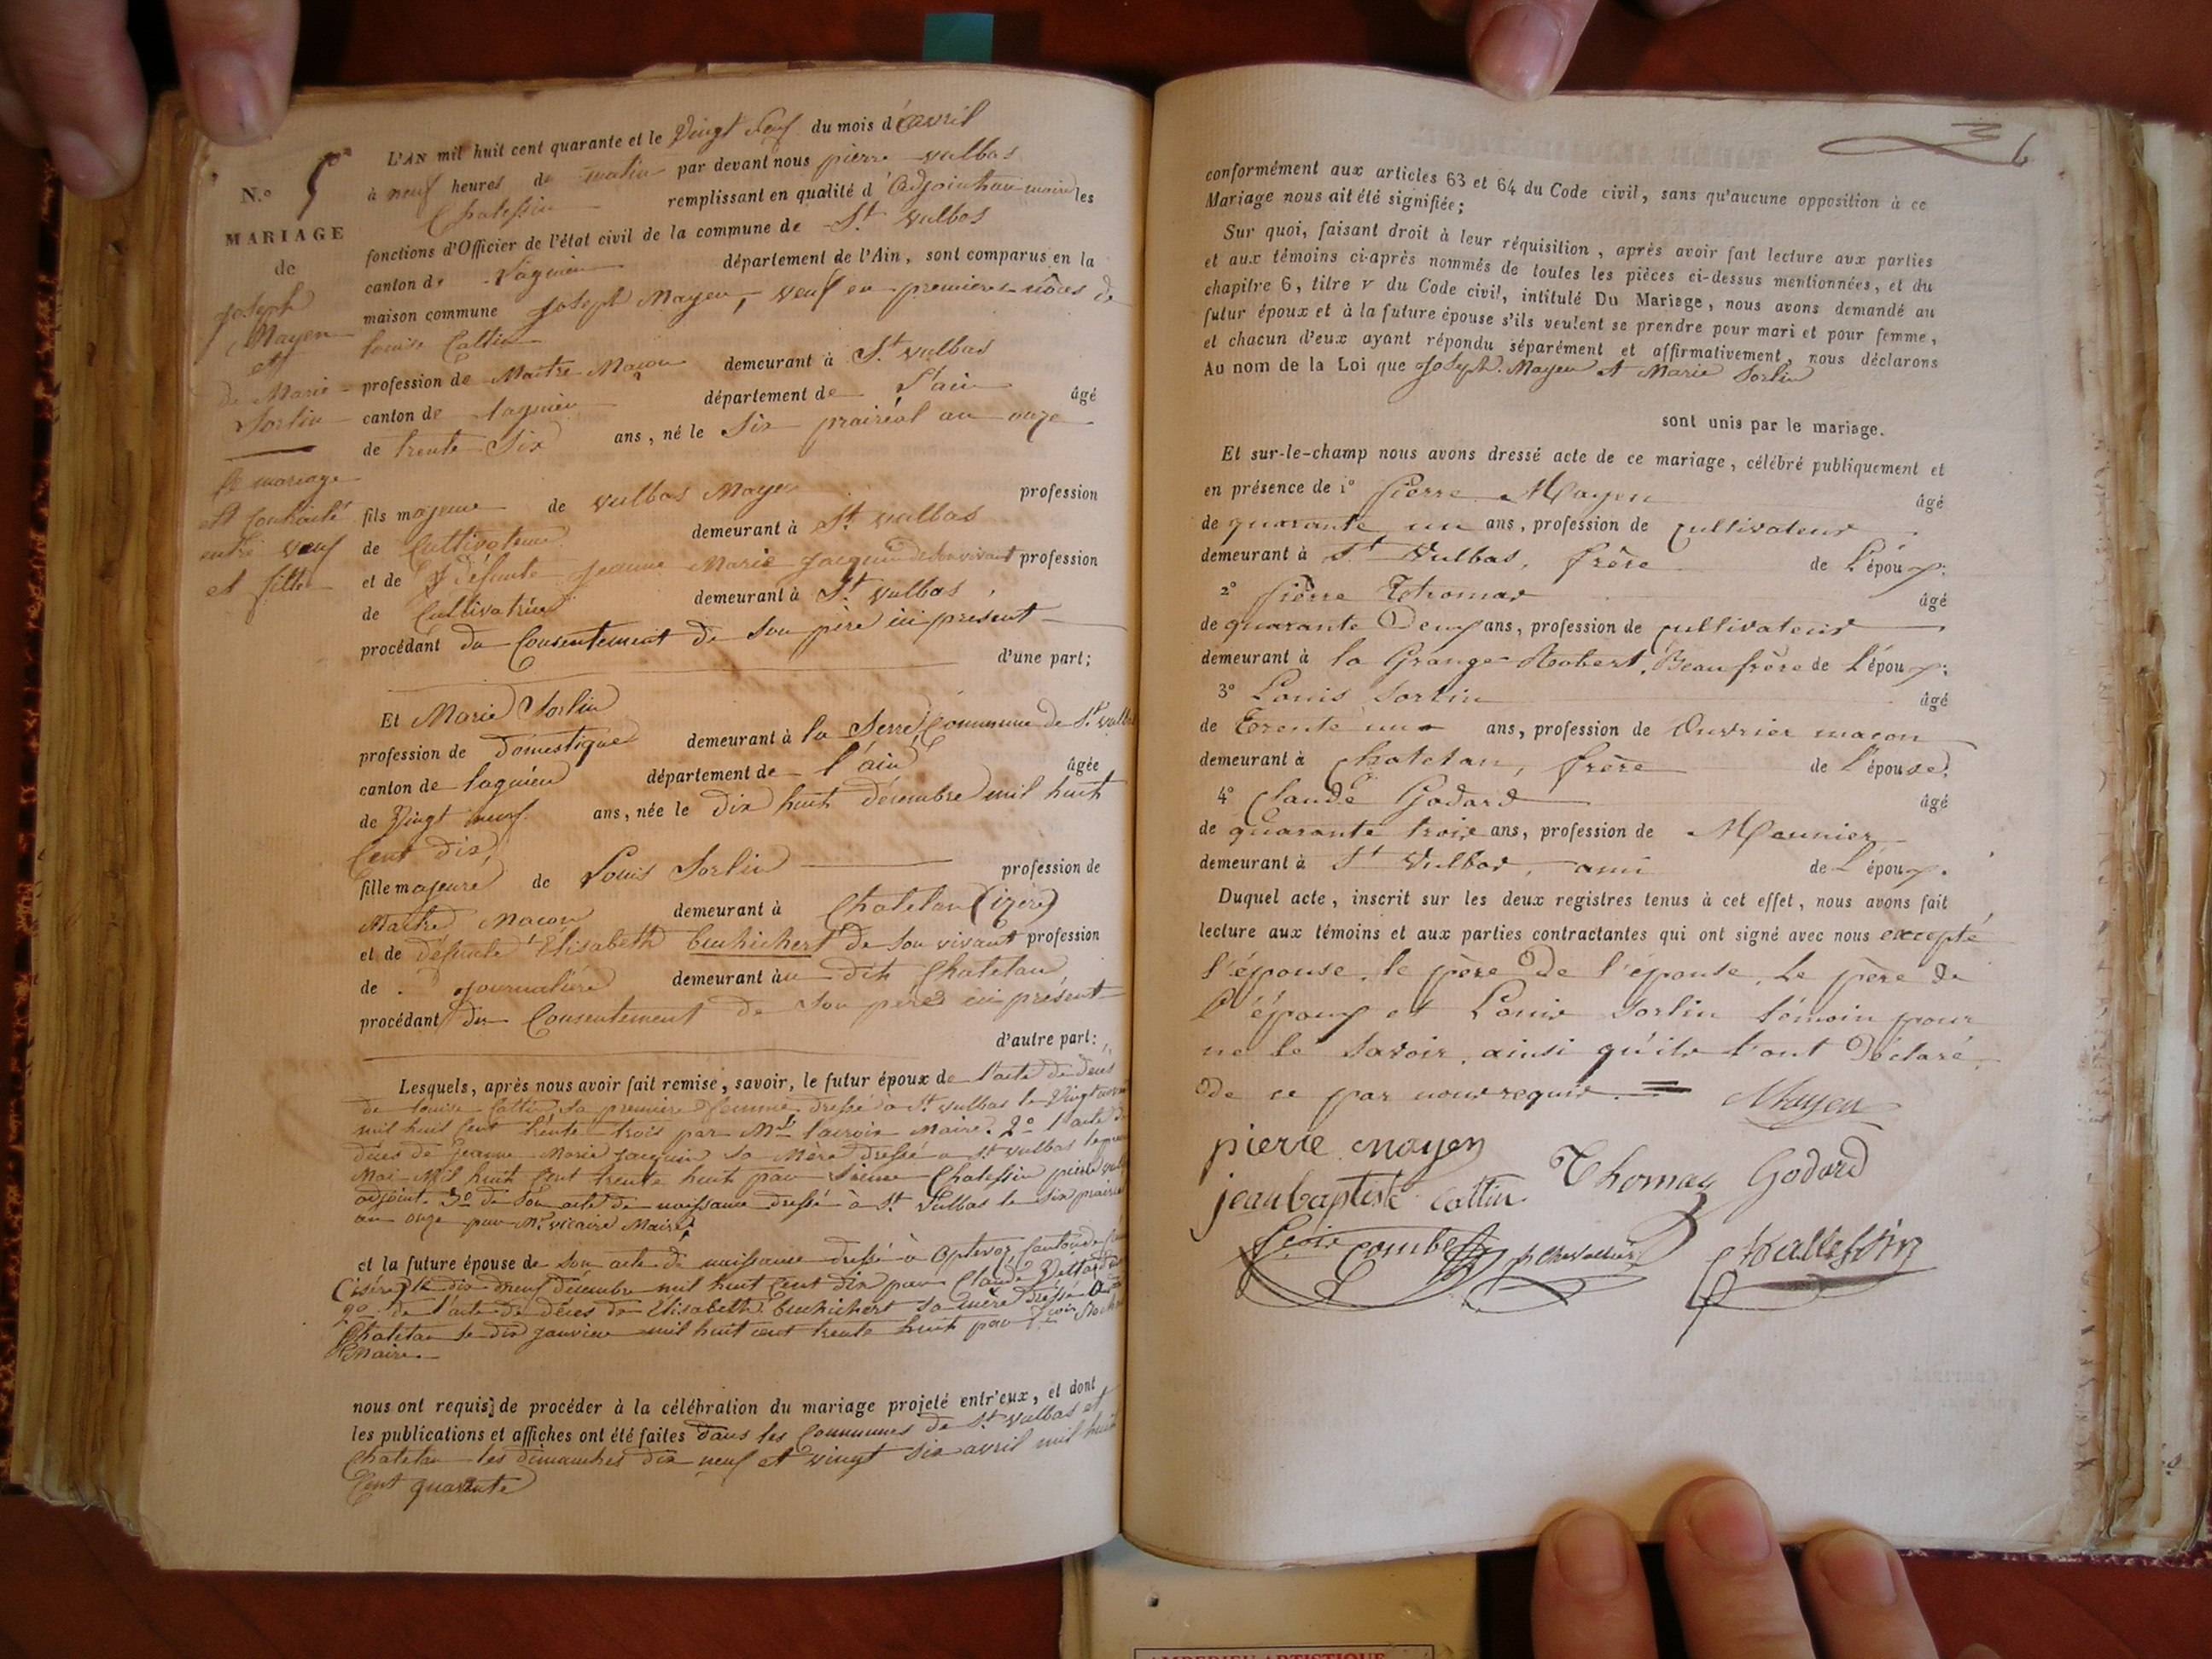 N.º 5
MARIAGE
de
Joseph
Mayen
et
de Marie
Sorlin
le mariage
est souhaité
entre veuf
et fille
L'AN mil huit cent quarante et le Vingt neuf du mois d'avril
à neuf heures de matin par devant nous pierre vulbas
Chalessin remplissant en qualité d'adjoint au maire les
fonctions d'Officier de l'état civil de la commune de St. Vulbas
canton de Lagnieu département de l'Ain, sont comparus en la
maison commune Joseph Mayen, veuf en premières nôces de
louise Cattin
profession de Maitre Maçon demeurant à St. vulbas
canton de lagnieu département de l'ain âgé
de trente Six ans, né le Six prairéal an onze
fils majeur de vulbas Mayen profession
de Cultivateur demeurant à St. vulbas
et de défunte Jeanne Marie Jacquin de son vivant profession
de Cultivatrice demeurant à St. vulbas
procédant du Consentement de son père ici présent
d'une part;
Et Marie Sorlin
profession de domestique demeurant à la Serre, Commune de St. vulbas
canton de lagnieu département de l'ain âgée
de Vingt neuf ans, née le dix huit décembre mil huit
Cent dix
fille majeure de Louis Sorlin profession de
Maitre Maçon demeurant à Chatelan (izère)
et de défunte Elisabeth de son vivant profession
de journalière demeurant au dit Chatelan
procédant du Consentement de son père ici présent
d'autre part;
Lesquels, après nous avoir fait remise, savoir, le futur époux de l'acte de décès
de louise Cattin sa première femme, dressé à St vulbas le Vingt
mil huit Cent trente trois par Mr. lacroix Maire. 2º l'acte de
décès de Jeanne Marie Jacquin sa Mère dressé à St vulbas le
Mai Mil huit Cent trente huit par Chalessin pierre
adjoint 3º de Son acte de naissance dressé à St. Vulbas le Six prairéal
an onze par Mr. vicaire Maire,
et la future épouse de son acte de naissance dressé à Optevoz, Canton de
(isère) le dix neuf décembre mil huit Cent dix par Claude
2º de l'acte de décès de Elisabeth sa mère dressé à
Chatelan le dix janvier mil huit cent trente huit par
Maire.
nous ont requis de procéder à la célébration du mariage projeté entr'eux, et dont
les publications et affiches ont été faites dans les Communes de St. vulbas et
Chatelan les dimanches dix neuf et vingt six avril mil huit
Cent quarante
conformément aux articles 63 et 64 du Code civil, sans qu'aucune opposition à ce
Mariage nous ait été signifiée;
Sur quoi, faisant droit à leur réquisition, après avoir fait lecture aux parties
et aux témoins ci-après nommés de toutes les pièces ci-dessus mentionnées, et du
chapitre 6, titre v du Code civil, intitulé Du Mariage, nous avons demandé au
futur époux et à la future épouse s'ils veulent se prendre pour mari et pour femme,
et chacun d'eux ayant répondu séparément et affirmativement, nous déclarons
Au nom de la Loi que Joseph Mayen et Marie Sorlin
sont unis par le mariage.
Et sur-le-champ nous avons dressé acte de ce mariage, célébré publiquement et
en présence de 1º Pierre Mayen âgé
de quarante un ans, profession de cultivateur
demeurant à St. Vulbas, frère de l'époux.
2º Pierre Thomas âgé
de quarante Deux ans, profession de cultivateur
demeurant à la Grange Robert, Beau frère de l'époux.
3º Louis Sorlin âgé
de trente un ans, profession de Ouvrier maçon
demeurant à Chatelan, frère de l'épouse.
4º Claude Godard âgé
de quarante trois ans, profession de Meunier
demeurant à St Vulbas, ami de l'époux.
Duquel acte, inscrit sur les deux registres tenus à cet effet, nous avons fait
lecture aux témoins et aux parties contractantes qui ont signé avec nous excepté
l'épouse, le père de l'épouse, le père de
l'époux et Louis Sorlin témoin pour
ne le savoir, ainsi qu'ils l'ont déclaré
de ce par nous requis. Mayen
pierre mayen
Thomas Godard
jean baptiste cattin
Combe Chevallier Challessin
AMBERIEU ARTISTIQUE